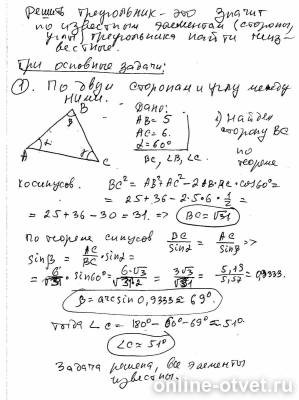 Решить треугольник – это значит
по известным элементам (стороны,
углы) треугольника найти неиз-
вестные.
Три основные задачи:
① По двум сторонам и углу между
ними.
B
β
α
γ
A
C
Дано:
AB = 5
AC = 6.
α = 60°
BC, ∠B, ∠C.
1) Найдем
сторону BC
по
теореме
косинусов. BC² = AB² + AC² - 2AB·AC·cos60° =
= 25 + 36 - 2·5·6·½ =
= 25 + 36 - 30 = 31. => BC = √31
По теореме синусов BC/sinα = AC/sinβ =>
sinβ = AC/BC · sinα =
= 6/√31 · sin60° = 6·√3/√31·2 = 3√3/√31 = 5,19/5,57 = 0,9333.
β = arcsin 0,9333 ≈ 69°.
Тогда ∠C = 180° - 60° - 69° ≈ 51°
∠C ≈ 51°
Задача решена, все элементы
известны.
online-otvet.ru